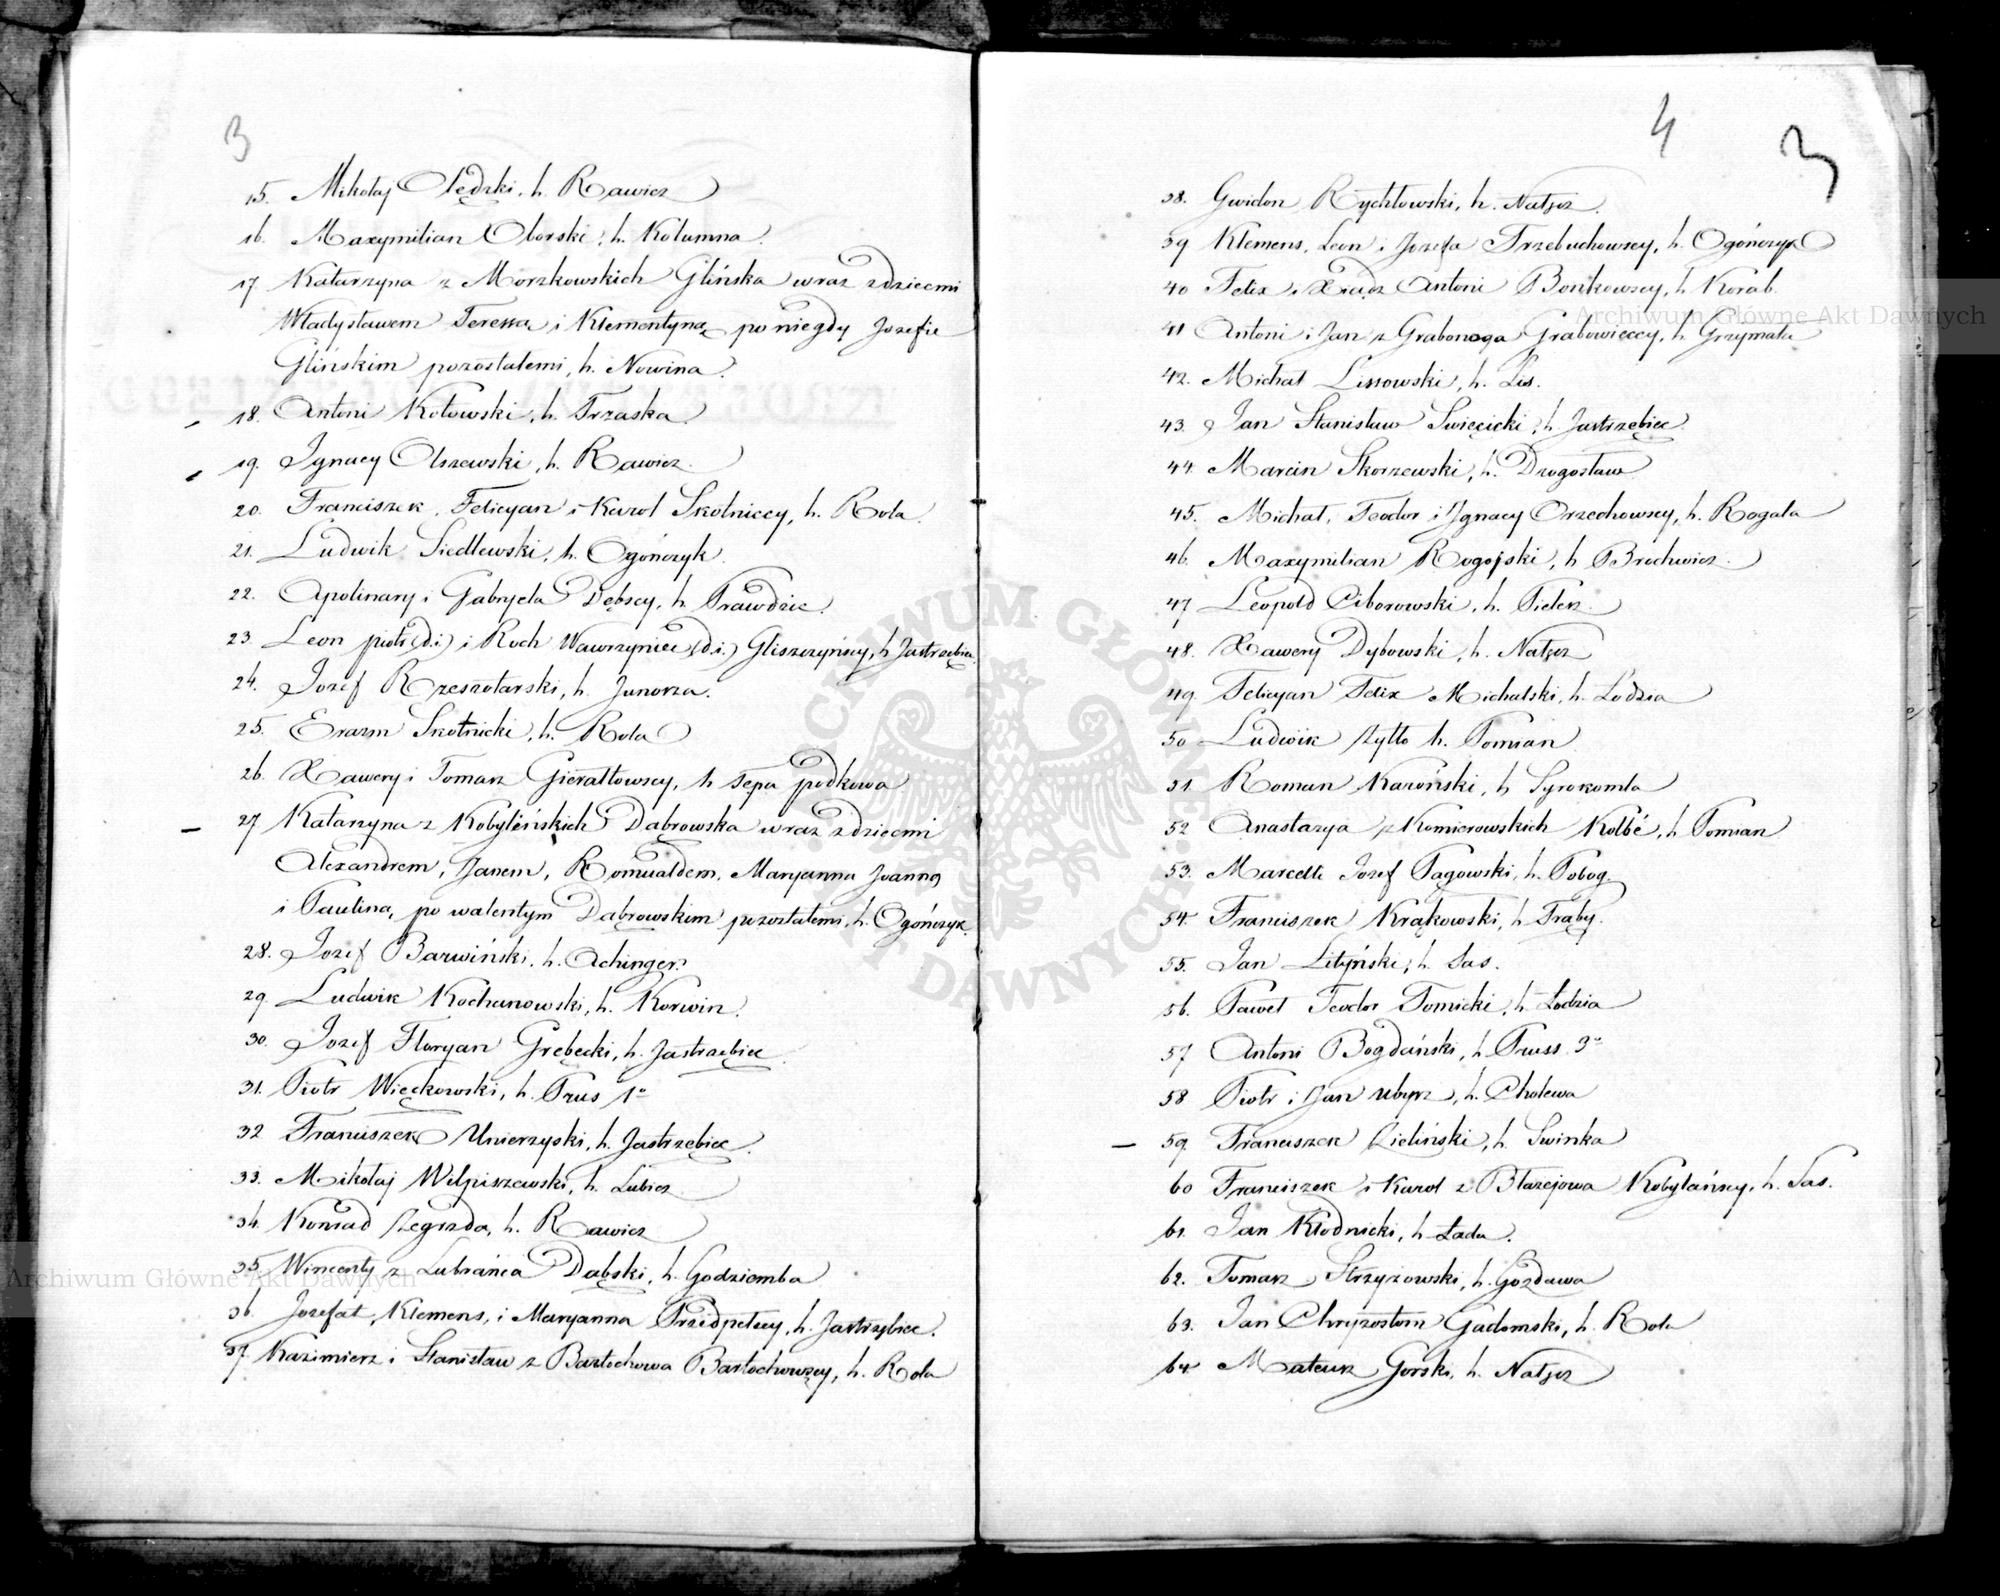 3
15. Mikołaj Olędzki, h. Rawicz
16. Maxymilian Oborski, h. Kolumna.
17 Katarzyna z Morzkowskich Glińska wraz z dziecmi
Władysławem Teressą i Klementyną po niegdy Jozefie
Glińskim pozostałemi, h. Nowina.
18. Antoni Kotowski, h. Trzaska
19. Ignacy Olszewski, h. Rawicz.
20. Franciszek, Felicyan i Karol Skolniccy, h. Rola.
21. Ludwik Siedlewski, h. Ogończyk.
22. Apolinary i Gabryela Dębscy, h. Prawdzic.
23 Leon piotr (d.i.) i Roch Wawrzyniec (d.i.) Gliszczyńscy, h Jastrzębiec.
24. Jozef Rzeszotarski, h. Junosza.
25. Erazm Skotnicki, h. Rola
26. Xawery i Tomasz Gierałtowscy, h Tępa podkowa
27 Katarzyna z Kobylińskich Dąbrowska wraz z dziecmi
Alexandrem, Janem, Romualdem, Maryanną Joanną
i Pauliną, po walentym Dąbrowskim pozostałemi, h. Ogończyk.
28. Jozef Barwiński, h. Achinger.
29. Ludwik Kochanowski, h. Korwin.
30. Jozef Floryan Grębecki, h. Jastrzębiec.
31. Piotr Więckowski, h. Prus 1º
32 Franciszek Unierzyski, h. Jastrzębiec.
33. Mikołaj Wilpiszewski, h. Lubicz.
34. Konrad Zegrzda, h. Rawicz
35. Wincenty z Lubrańca Dąbski, h. Godziemba
36. Jozefat, Klemens, i Maryanna Przedpełscy, h. Jastrzębiec.
37. Kazimierz i Stanisław z Bartochowa Bartochowscy, h. Rola
4 3
38. Gwidon Rychłowski, h. Nałęcz.
39 Klemens, Leon i Jozefa Trzebuchowscy, h. Ogończyk
40 Felix i Xiądz Antoni Bońkowscy, h. Korab.
41 Antoni i Jan z Grabonoga Grabowieccy, h. Grzymała
42. Michał Lissowski, h. Lis.
43. Jan Stanisław Swięcicki, h. Jastrzębiec.
44. Marcin Skorzewski, h. Drogosław
45. Michał, Teodor i Ignacy Orzechowscy, h. Rogala
46. Maxymilian Rogojski, h Brochwicz.
47 Leopold Ciborowski, h. Pielesz.
48. Xawery Dybowski, h. Nałęcz
49. Felicyan Felix Michalski, h. Łodzia
50 Ludwik Żytło h. Pomian.
51 Roman Karoński, h Syrokomla
52 Anastazya z Komierowskich Kolbé, h Pomian
53. Marcelli Jozef Pągowski, h. Pobog.
54. Franciszek Krąkowski, h Trąby.
55. Jan Lityński, h. Sas.
56. Paweł Teodor Tomicki, h. Łodzia
57 Antoni Bogdański, h Pruss 3º
58 Piotr i Jan Ubysz, h. Cholewa
59. Franciszek Zieliński, h. Swinka
60 Franciszek i Karol z Błażejowa Kobylańscy, h. Sas.
61. Jan Kłodnicki, h Łada.
62. Tomasz Strzyżowski, h. Gozdawa
63. Jan Chryzostom Gadomski, h. Rola
64. Mateusz Gorski, h. Nałęcz
Archiwum Główne Akt Dawnych
Archiwum Główne Akt Dawnych
ARCHIWUM GŁÓWNE AKT DAWNYCH